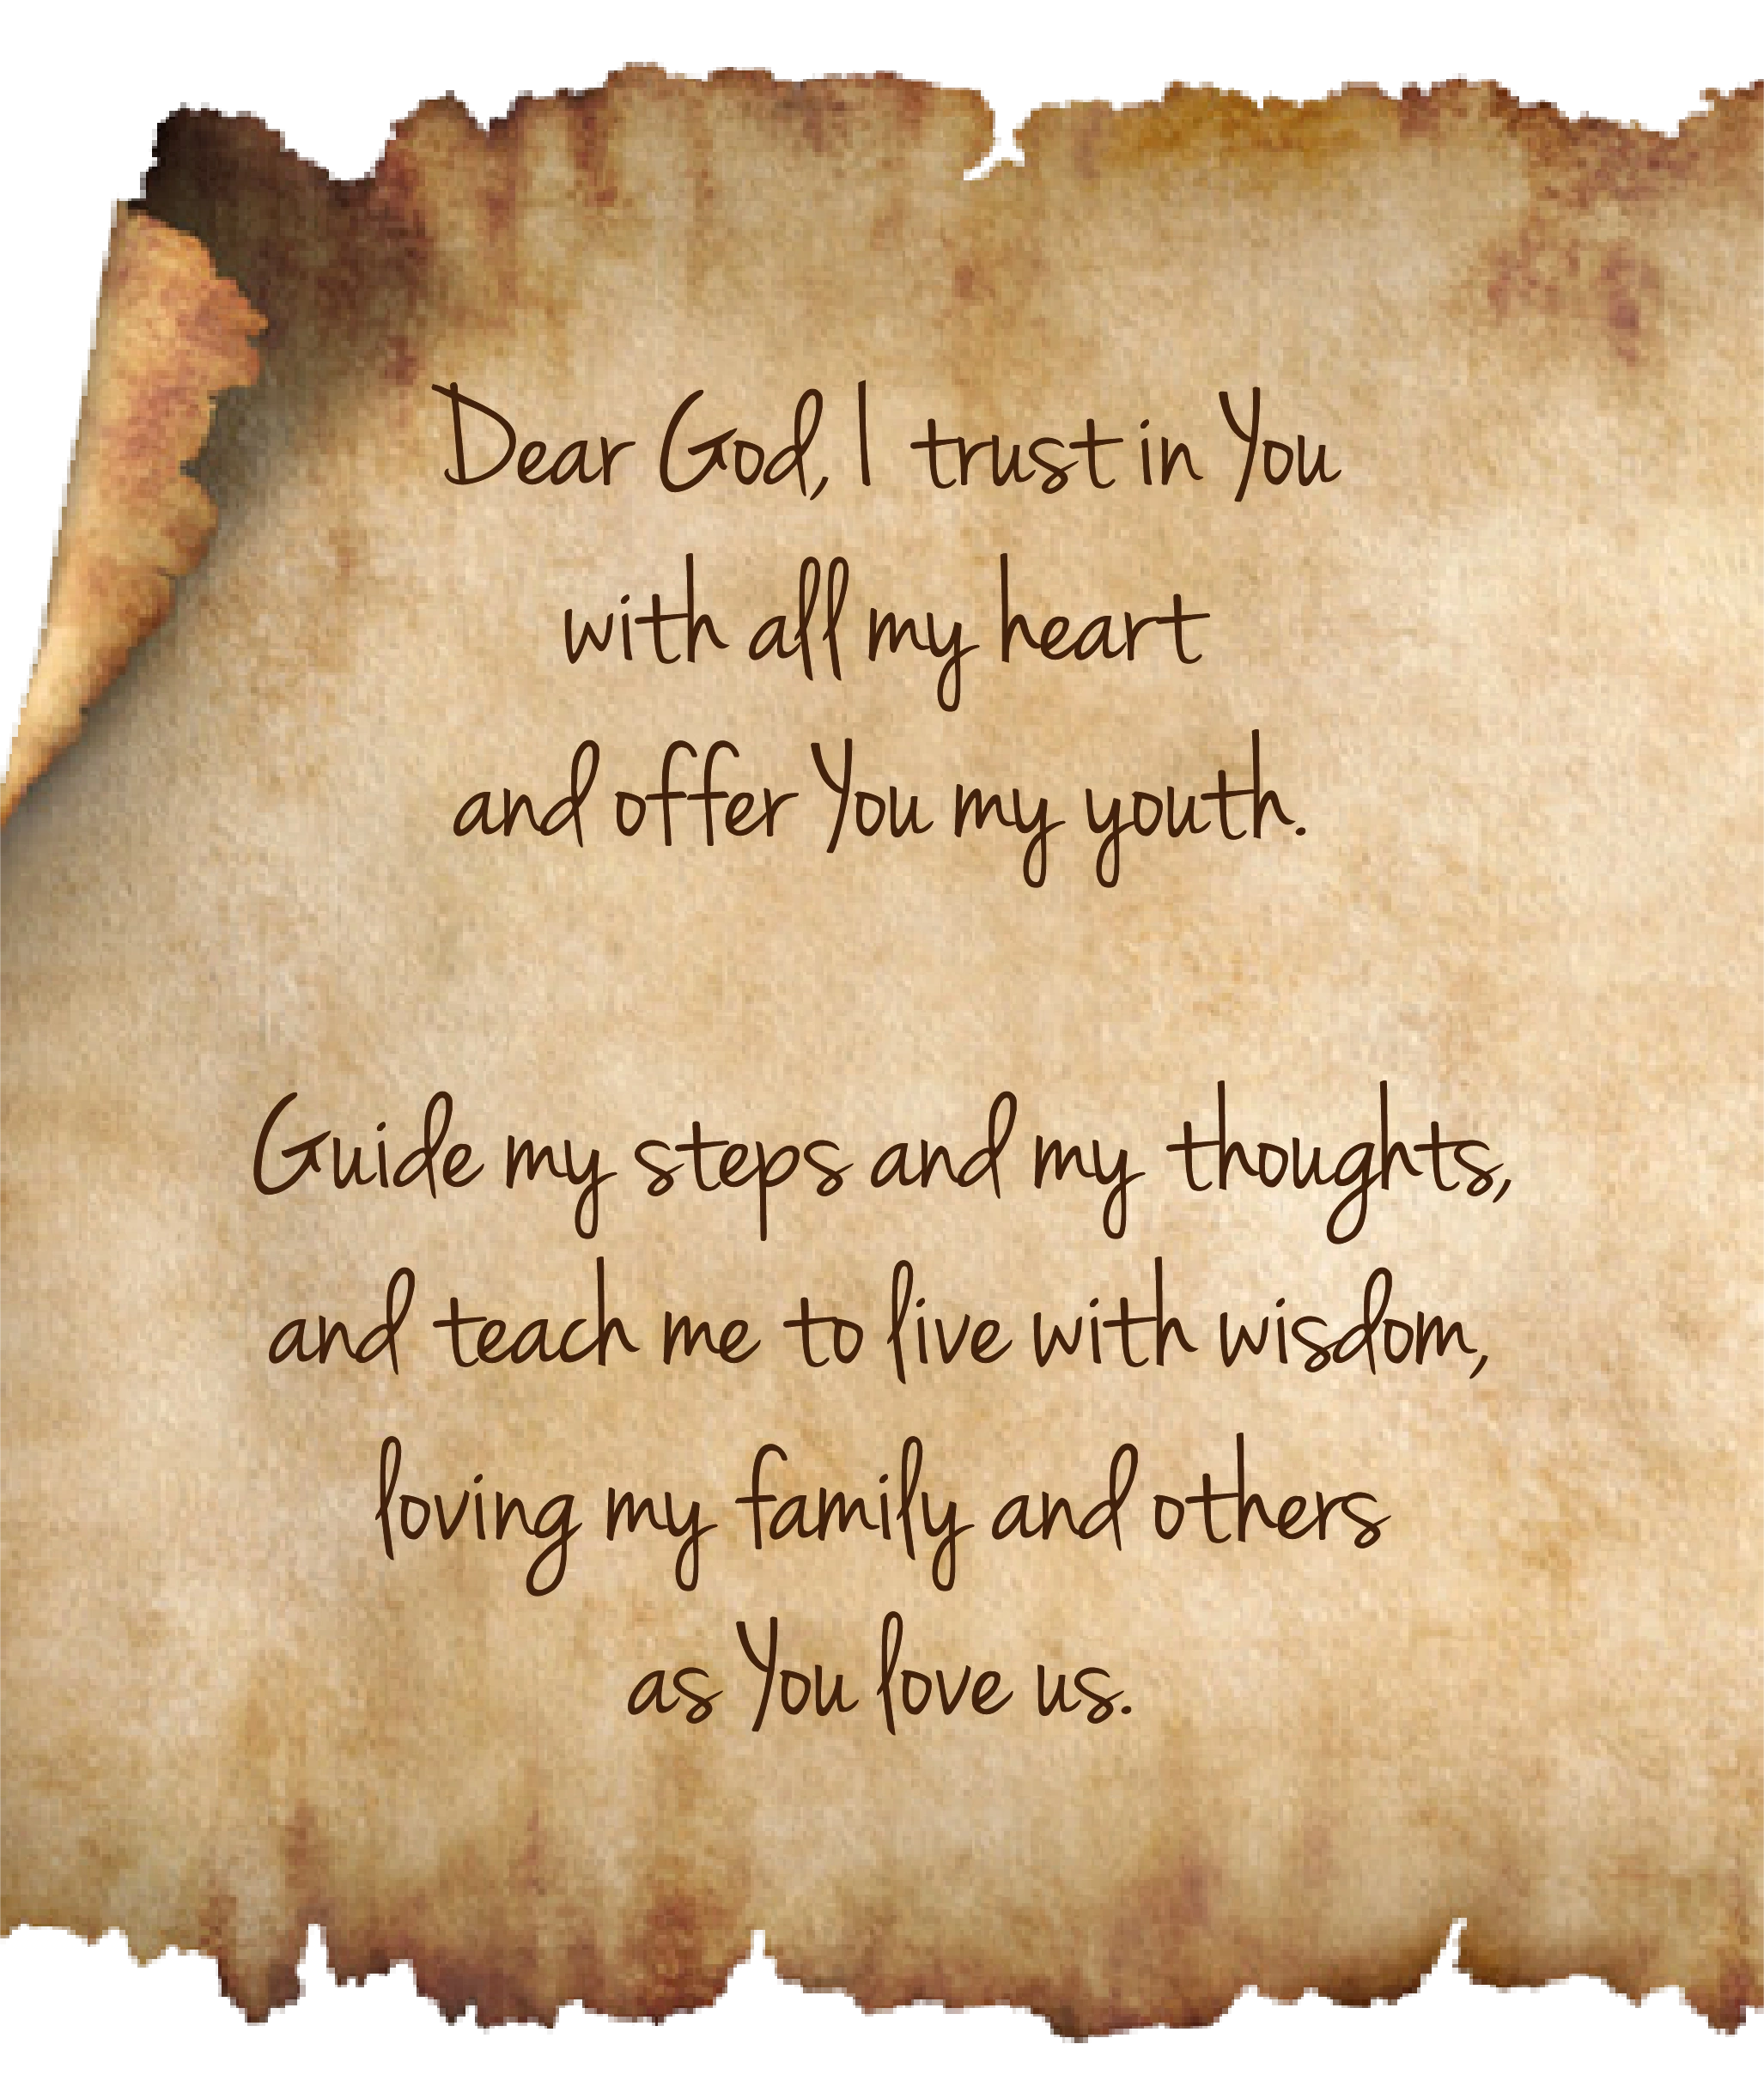 Dear God, I trust in You
with all my heart
and offer You my youth.
Guide my steps and my thoughts,
and teach me to live with wisdom,
loving my family and others
as You love us.